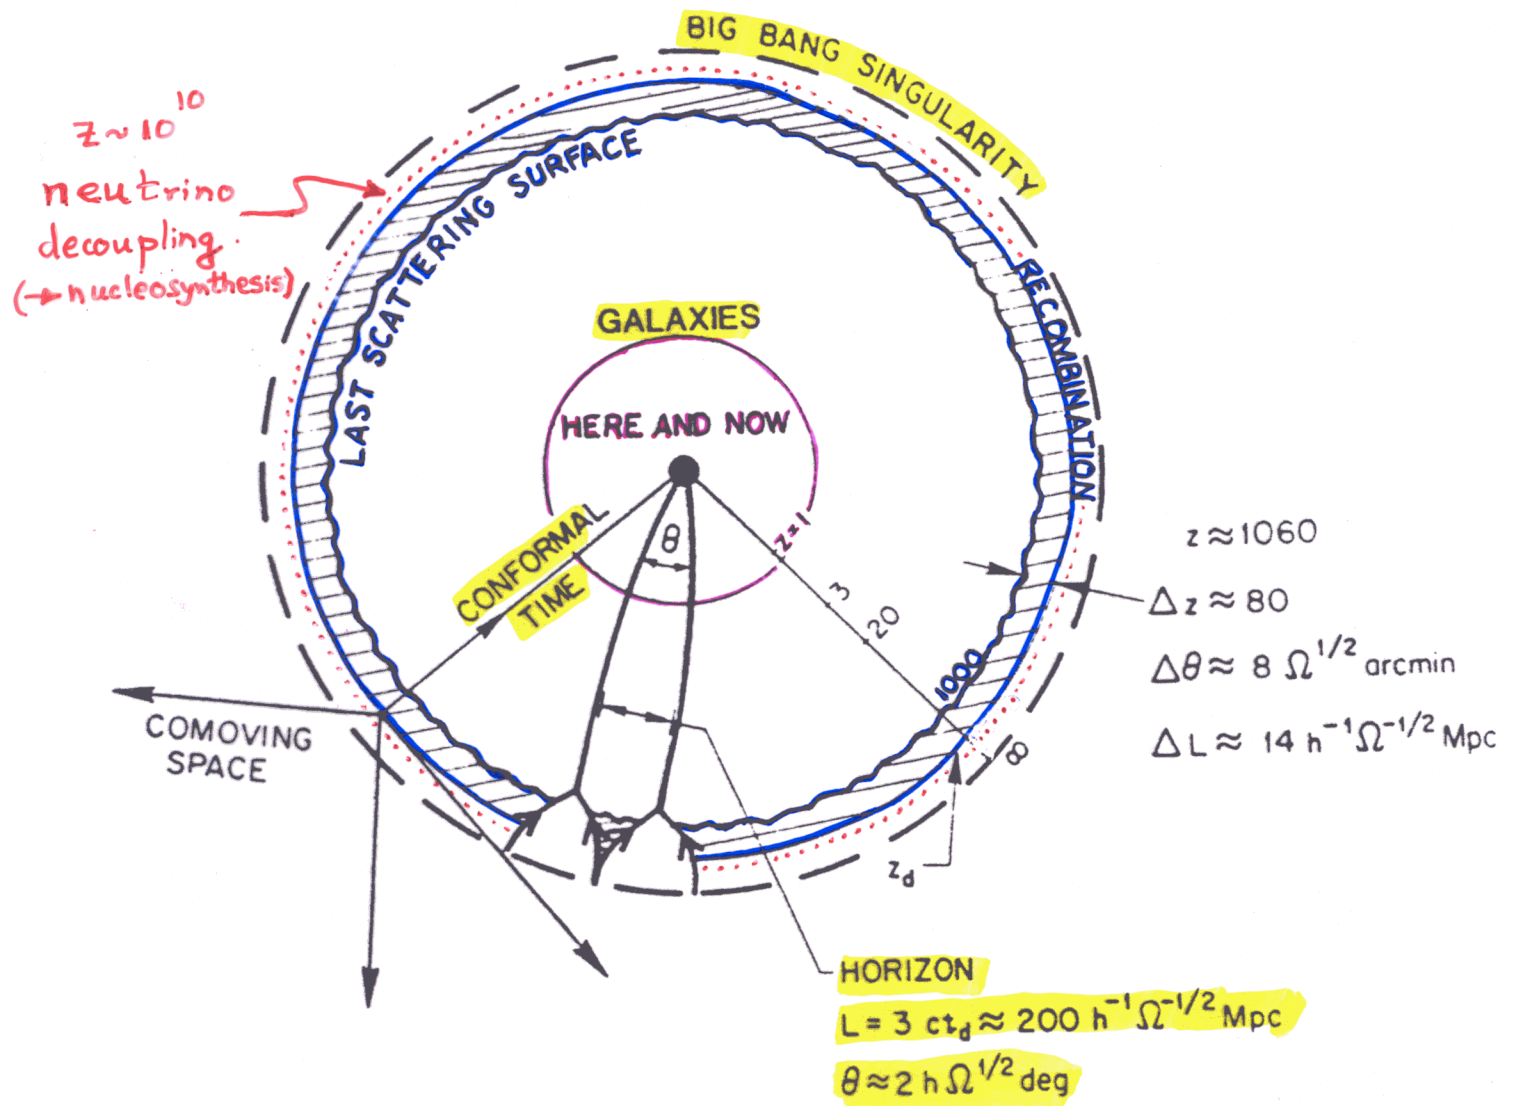 BIG BANG SINGULARITY
z ~ 10¹⁰
neutrino
decoupling.
(→ nucleosynthesis)
LAST SCATTERING SURFACE
RECOMBINATION
GALAXIES
HERE AND NOW
θ
CONFORMAL
TIME
z=1
3
20
1000
∞
z_d
COMOVING
SPACE
z ≈ 1060
Δz ≈ 80
Δθ ≈ 8 Ω^1/2 arcmin
ΔL ≈ 14 h⁻¹Ω^-1/2 Mpc
HORIZON
L = 3 ct_d ≈ 200 h⁻¹Ω^-1/2 Mpc
θ ≈ 2 h Ω^1/2 deg